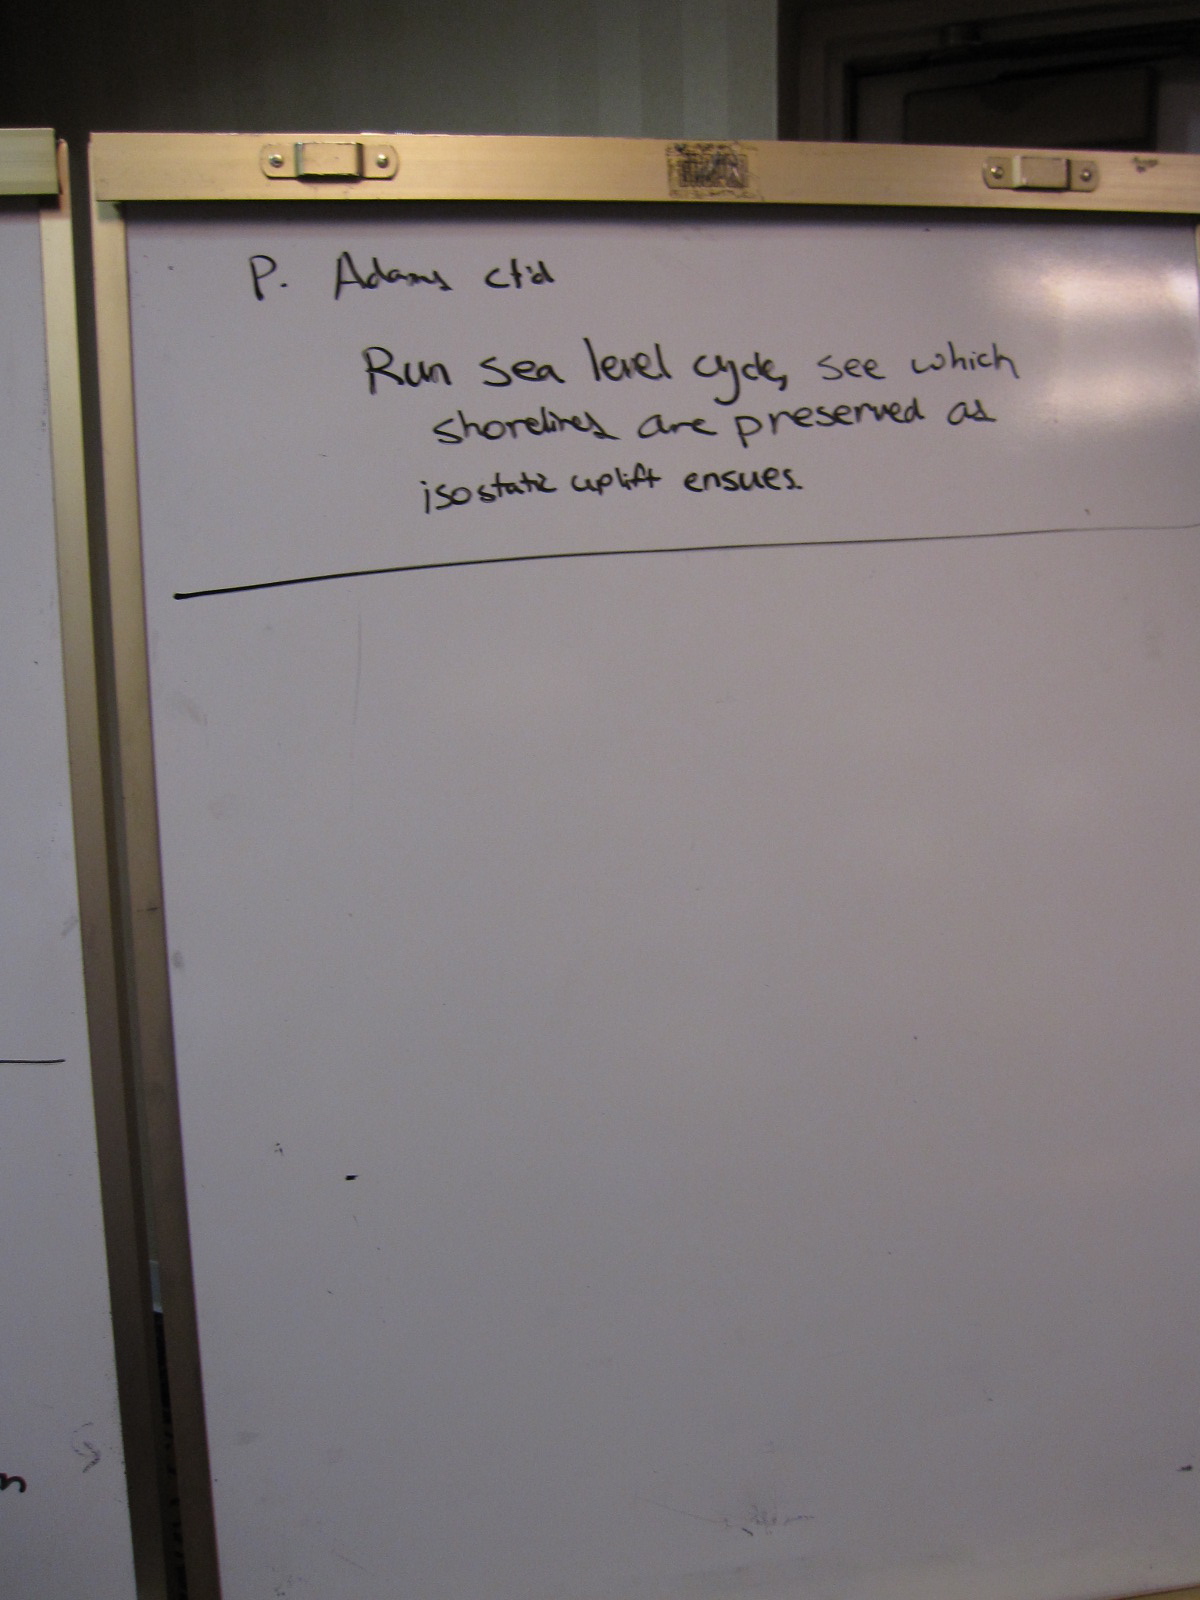 P. Adams ct'd
Run sea level cycle, see which
shorelines are preserved as
isostatic uplift ensues
n